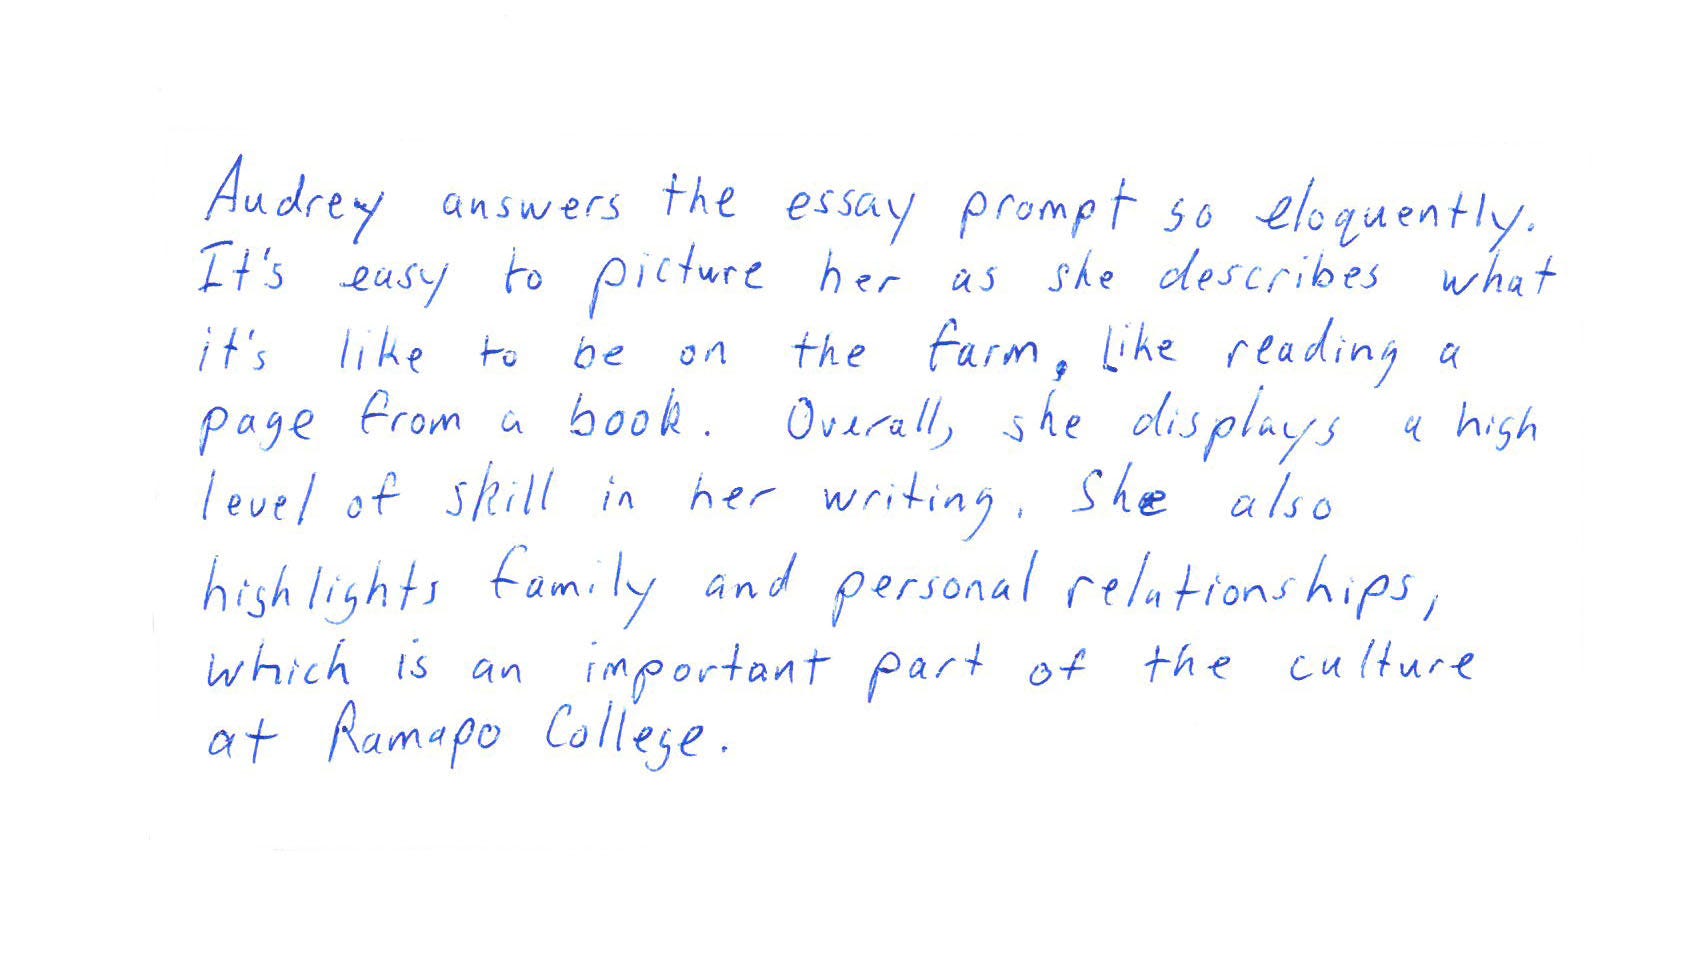 Audrey answers the essay prompt so eloquently.
It's easy to picture her as she describes what
it's like to be on the farm, like reading a
page from a book. Overall, she displays a high
level of skill in her writing. She also
highlights family and personal relationships,
which is an important part of the culture
at Ramapo College.